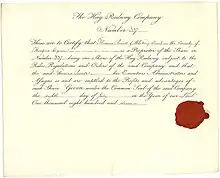 The Hay Railway Company
Number 257
These are to Certify that Thomas of in the County of
is a Proprietor of the Share
Number 257, being one Share of the Hay Railway subject to the
Rules Regulations and Orders of the said Company and that
the said Thomas his Executors Administrators and
Assigns is and are entitled to the Profits and advantages of
said Share Given under the Common Seal of the said Company
the day of July in the Year of our Lord
One thousand eight hundred and